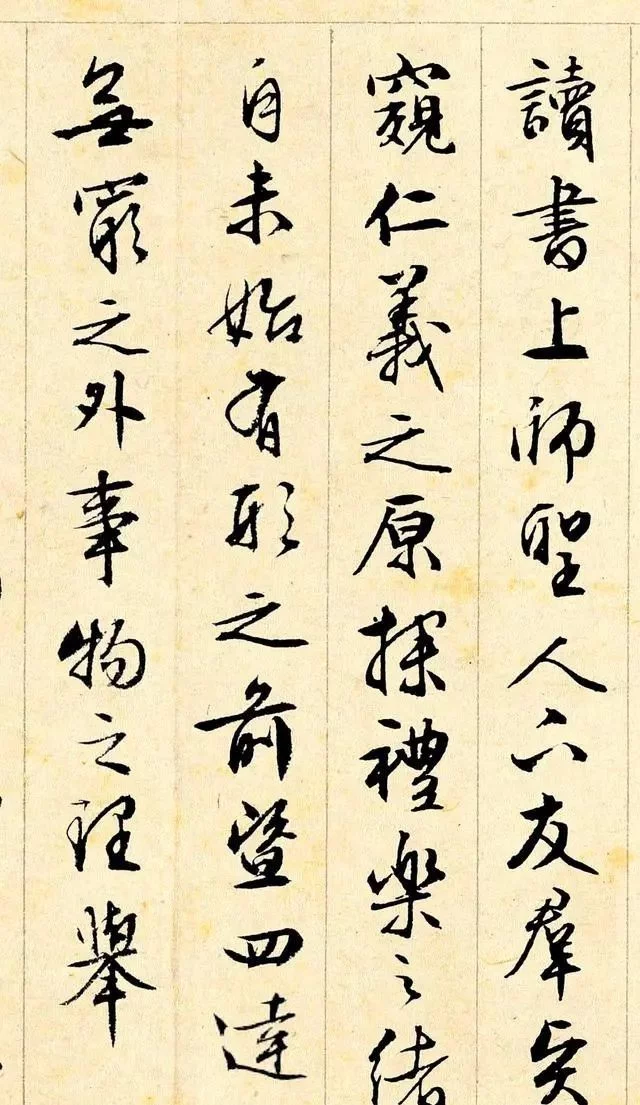 讀書上師聖人下友羣賢
窺仁義之原探禮樂之緒
自未始有形之前暨四達
無窮之外事物之理舉